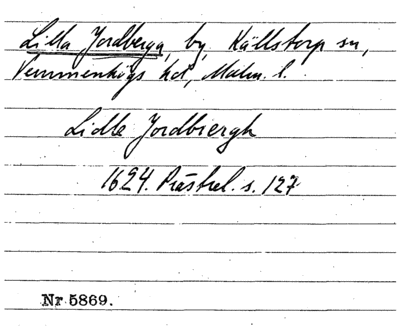 Lilla Jordberga, by, Källstorp sn,
Vemmenhögs hd, Malm. l.
Lidle Jordbiergh
1624. Prästrel. s. 127
Nr 5869.